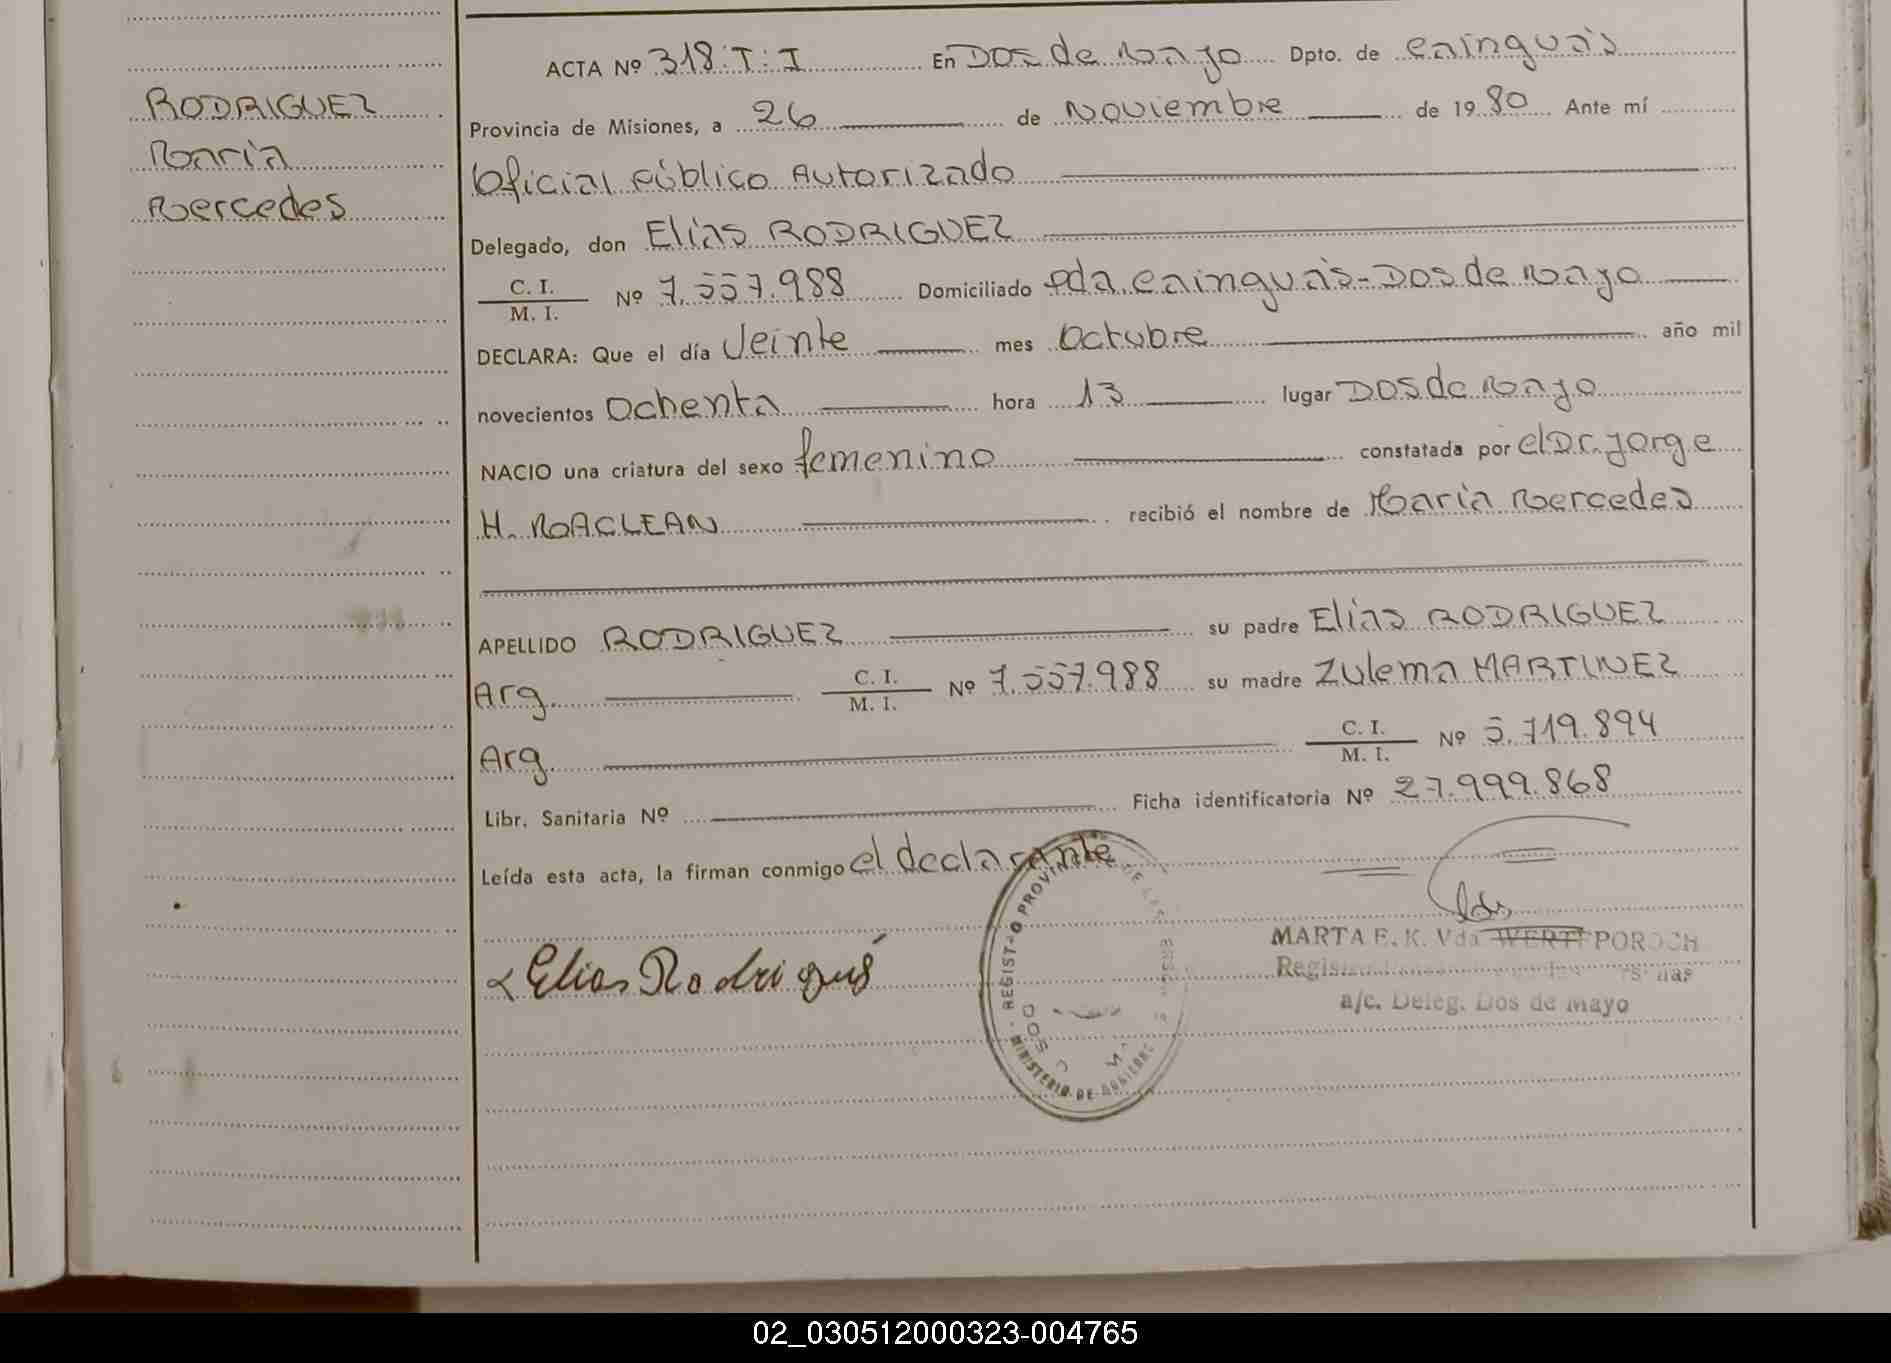 RODRIGUEZ
Maria
Mercedes
ACTA Nº 318.T.I En Dos de Mayo Dpto. de Cainguás
Provincia de Misiones, a 26 de Noviembre de 1980 Ante mí
Oficial Público Autorizado
Delegado, don Elias RODRIGUEZ
C. I. / M. I. Nº 7.557.988 Domiciliado Pda. Cainguás-Dos de Mayo
DECLARA: Que el día Veinte mes Octubre año mil
novecientos Ochenta hora 13 lugar Dos de Mayo
NACIO una criatura del sexo femenino constatada por el Dr. Jorge
H. MACLEAN recibió el nombre de Maria Mercedes
APELLIDO RODRIGUEZ su padre Elias RODRIGUEZ
Arg. C. I. / M. I. Nº 7.557.988 su madre Zulema MARTINEZ
Arg. C. I. / M. I. Nº 5.719.894
Libr. Sanitaria Nº Ficha identificatoria Nº 27.999.868
Leída esta acta, la firman conmigo el declarante
Elias Rodrigué
MARTA E. K. Vda POROCH
a/c. Deleg. Dos de Mayo
REGISTRO PROVINCIAL DE LAS
MINISTERIO DE GOBIERNO
02_030512000323-004765